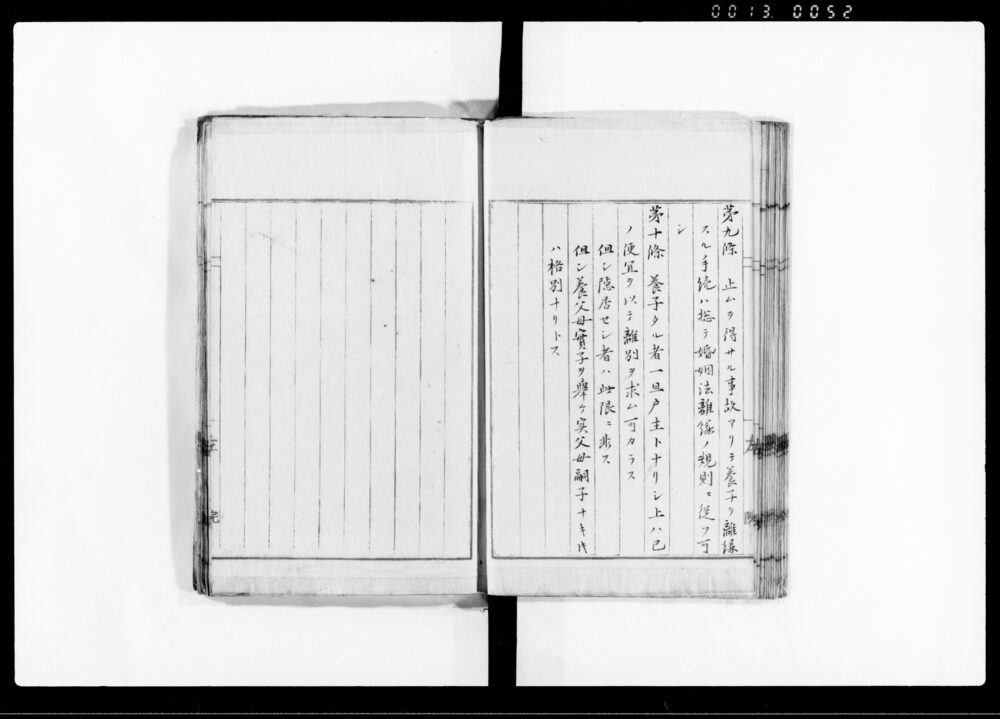 0013 0052
第九條　止ムヲ得サル事故アリテ養子ヲ離縁
スル手続ハ総テ婚姻法離縁ノ規則ニ従フ可
シ
第十條　養子タル者一旦戸主トナリシ上ハ己
ノ便宜ヲ以テ離別ヲ求ム可カラス
但シ隠居セシ者ハ此限ニ非ス
但シ養父母實子ヲ擧ケ实父母嗣子ナキ時
ハ格別ナリトス
左
院